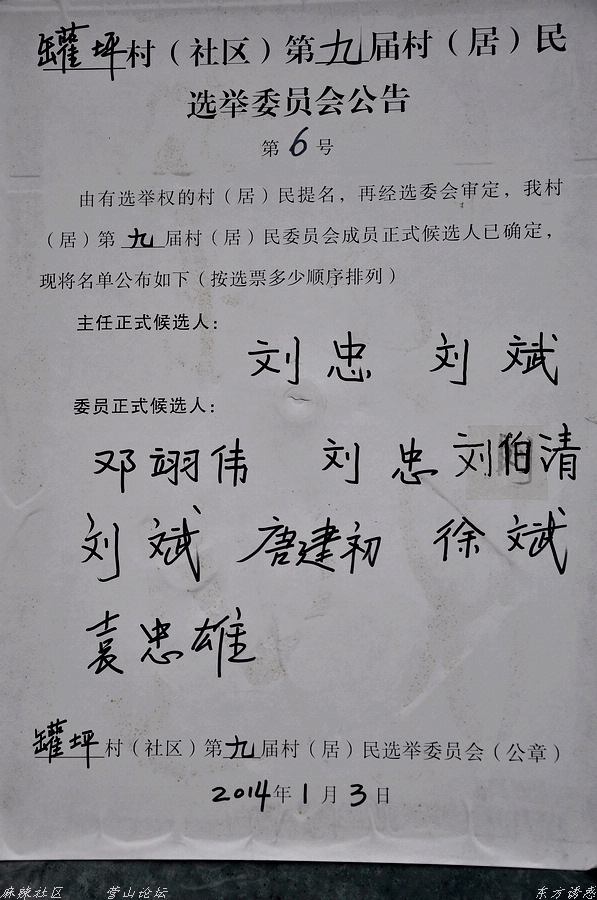 罐坪村（社区）第九届村（居）民
选举委员会公告
第 6 号
由有选举权的村（居）民提名，再经选委会审定，我村
（居）第九届村（居）民委员会成员正式候选人已确定，
现将名单公布如下（按选票多少顺序排列）
主任正式候选人：
刘忠 刘斌
委员正式候选人：
邓翊伟 刘忠 刘伯清
刘斌 唐建初 徐斌
袁忠雄
罐坪村（社区）第九届村（居）民选举委员会（公章）
2014年1月3日
麻辣社区 营山论坛 东方诱惑